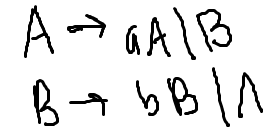 A → aA | B
B → bB | Λ